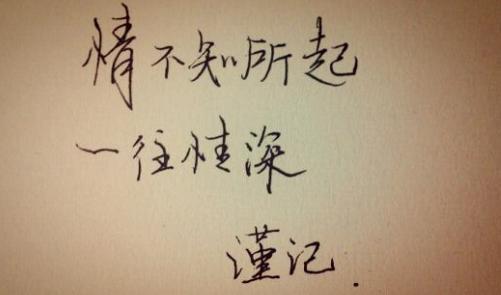 情不知所起
一往情深
谨记.